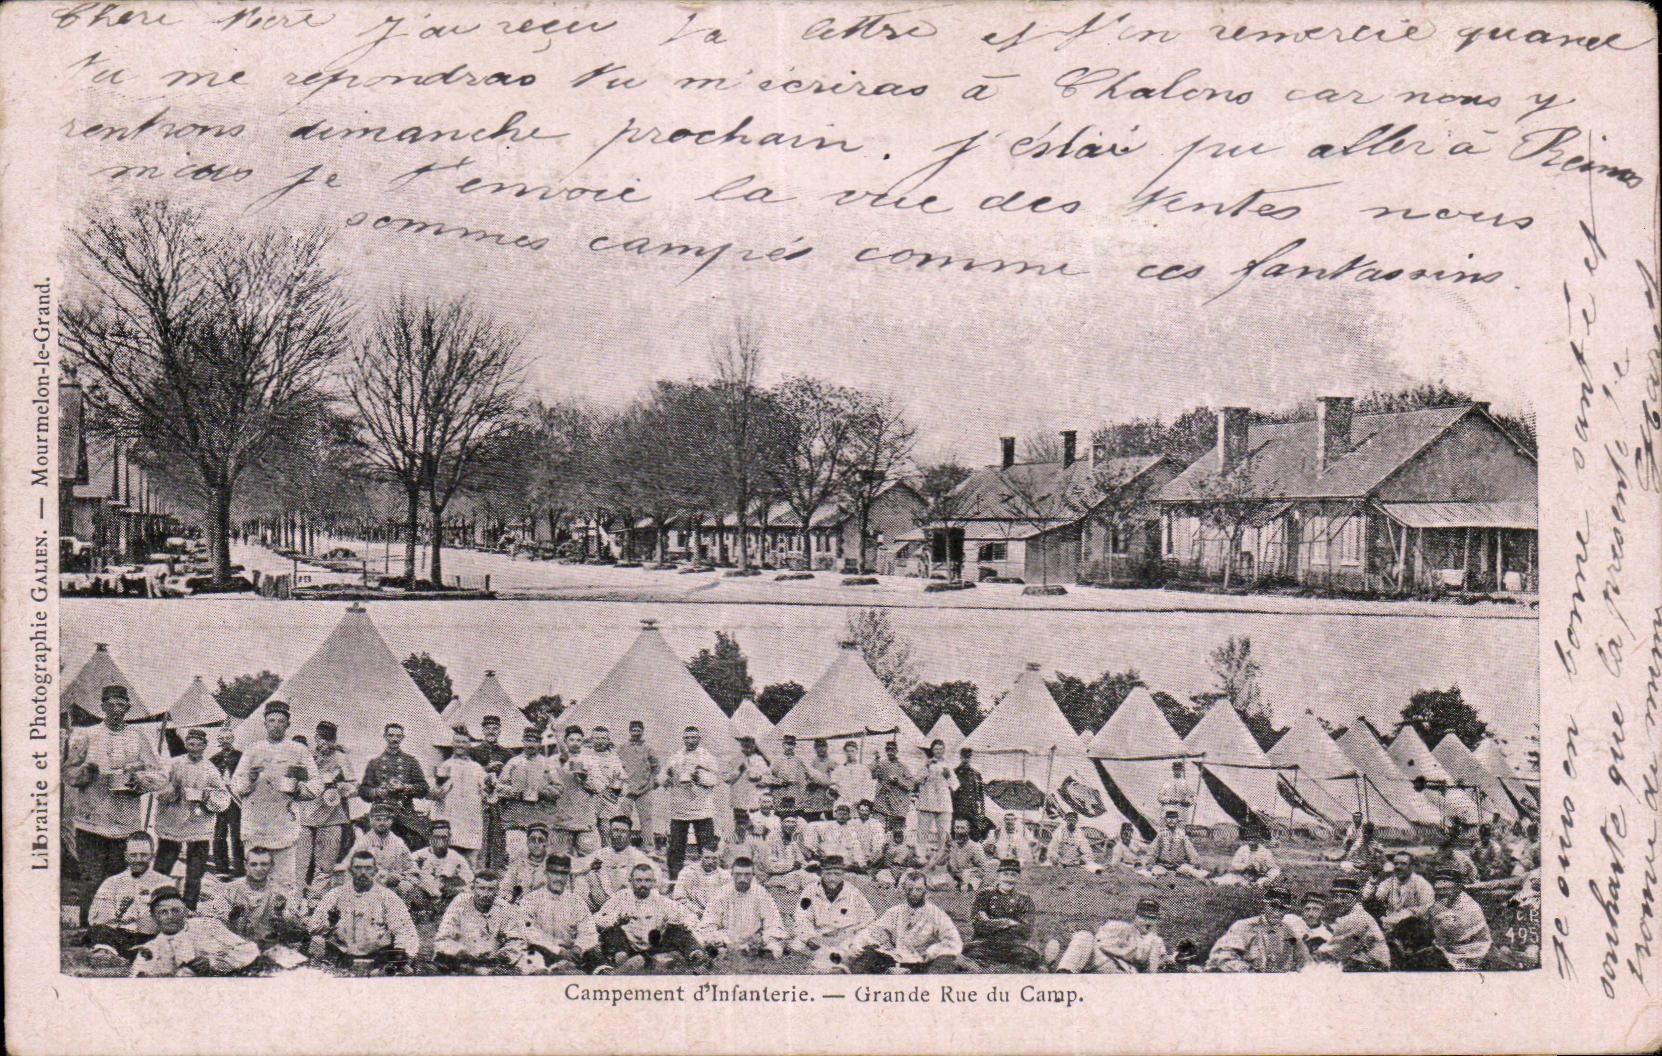 Chère Mère j'ai reçu ta lettre et t'en remercie quand
tu me repondras tu m'écriras à Chalons car nous y
rentrons dimanche prochain. j'étais pu aller à Reims
mais je t'envoie la vue des tentes nous
sommes campés comme ces fantassins.
et en bonne santé
souhaite que la présente
trouve de même
Librairie et Photographie GALIEN. — Mourmelon-le-Grand.
C.P.
495
Campement d'Infanterie. — Grande Rue du Camp.